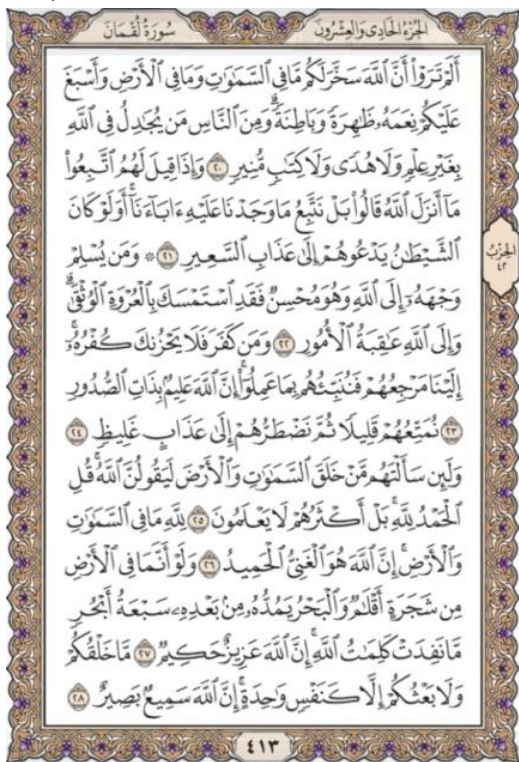 الجزء الحادي والعشرون
سورة لقمان
أَلَمْ تَرَوْا۟ أَنَّ ٱللَّهَ سَخَّرَ لَكُم مَّا فِى ٱلسَّمَـٰوَٰتِ وَمَا فِى ٱلْأَرْضِ وَأَسْبَغَ
عَلَيْكُمْ نِعَمَهُۥ ظَـٰهِرَةً وَبَاطِنَةً ۗ وَمِنَ ٱلنَّاسِ مَن يُجَـٰدِلُ فِى ٱللَّهِ
بِغَيْرِ عِلْمٍ وَلَا هُدًى وَلَا كِتَـٰبٍ مُّنِيرٍ ٢٠ وَإِذَا قِيلَ لَهُمُ ٱتَّبِعُوا۟
مَآ أَنزَلَ ٱللَّهُ قَالُوا۟ بَلْ نَتَّبِعُ مَا وَجَدْنَا عَلَيْهِ ءَابَآءَنَآ ۚ أَوَلَوْ كَانَ
ٱلشَّيْطَـٰنُ يَدْعُوهُمْ إِلَىٰ عَذَابِ ٱلسَّعِيرِ ٢١ ۞ وَمَن يُسْلِمْ
وَجْهَهُۥٓ إِلَى ٱللَّهِ وَهُوَ مُحْسِنٌ فَقَدِ ٱسْتَمْسَكَ بِٱلْعُرْوَةِ ٱلْوُثْقَىٰ ۗ
وَإِلَى ٱللَّهِ عَـٰقِبَةُ ٱلْأُمُورِ ٢٢ وَمَن كَفَرَ فَلَا يَحْزُنكَ كُفْرُهُۥٓ ۚ
إِلَيْنَا مَرْجِعُهُمْ فَنُنَبِّئُهُم بِمَا عَمِلُوٓا۟ ۚ إِنَّ ٱللَّهَ عَلِيمٌۢ بِذَاتِ ٱلصُّدُورِ
٢٣ نُمَتِّعُهُمْ قَلِيلًا ثُمَّ نَضْطَرُّهُمْ إِلَىٰ عَذَابٍ غَلِيظٍ ٢٤
وَلَئِن سَأَلْتَهُم مَّنْ خَلَقَ ٱلسَّمَـٰوَٰتِ وَٱلْأَرْضَ لَيَقُولُنَّ ٱللَّهُ ۚ قُلِ
ٱلْحَمْدُ لِلَّهِ ۚ بَلْ أَكْثَرُهُمْ لَا يَعْلَمُونَ ٢٥ لِلَّهِ مَا فِى ٱلسَّمَـٰوَٰتِ
وَٱلْأَرْضِ ۚ إِنَّ ٱللَّهَ هُوَ ٱلْغَنِىُّ ٱلْحَمِيدُ ٢٦ وَلَوْ أَنَّمَا فِى ٱلْأَرْضِ
مِن شَجَرَةٍ أَقْلَـٰمٌ وَٱلْبَحْرُ يَمُدُّهُۥ مِنۢ بَعْدِهِۦ سَبْعَةُ أَبْحُرٍ
مَّا نَفِدَتْ كَلِمَـٰتُ ٱللَّهِ ۗ إِنَّ ٱللَّهَ عَزِيزٌ حَكِيمٌ ٢٧ مَّا خَلْقُكُمْ
وَلَا بَعْثُكُمْ إِلَّا كَنَفْسٍ وَٰحِدَةٍ ۗ إِنَّ ٱللَّهَ سَمِيعٌۢ بَصِيرٌ ٢٨
الحزب
٤٢
٤١٣